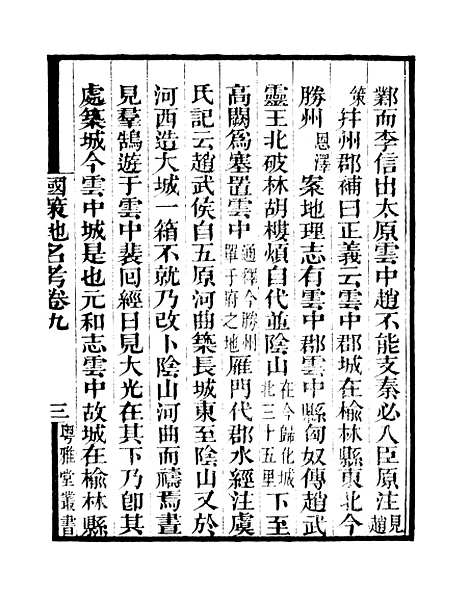 鄴而李信出太原雲中趙不能支秦必入臣原注見趙
策幷州郡補曰正義云雲中郡城在榆林縣東北今
勝州恩澤案地理志有雲中郡雲中縣匈奴傳趙武
靈王北破林胡樓煩自代並陰山在今歸化城北三十五里下至
高闕爲塞置雲中通釋今勝州單于府之地雁門代郡水經注虞
氏記云趙武侯自五原河曲築長城東至陰山又於
河西造大城一箱不就乃改卜陰山河曲而禱焉晝
見羣鵠遊于雲中裴回經日見大光在其下乃卽其
處築城今雲中城是也元和志雲中故城在榆林縣
國策地名考卷九 三 粵雅堂叢書